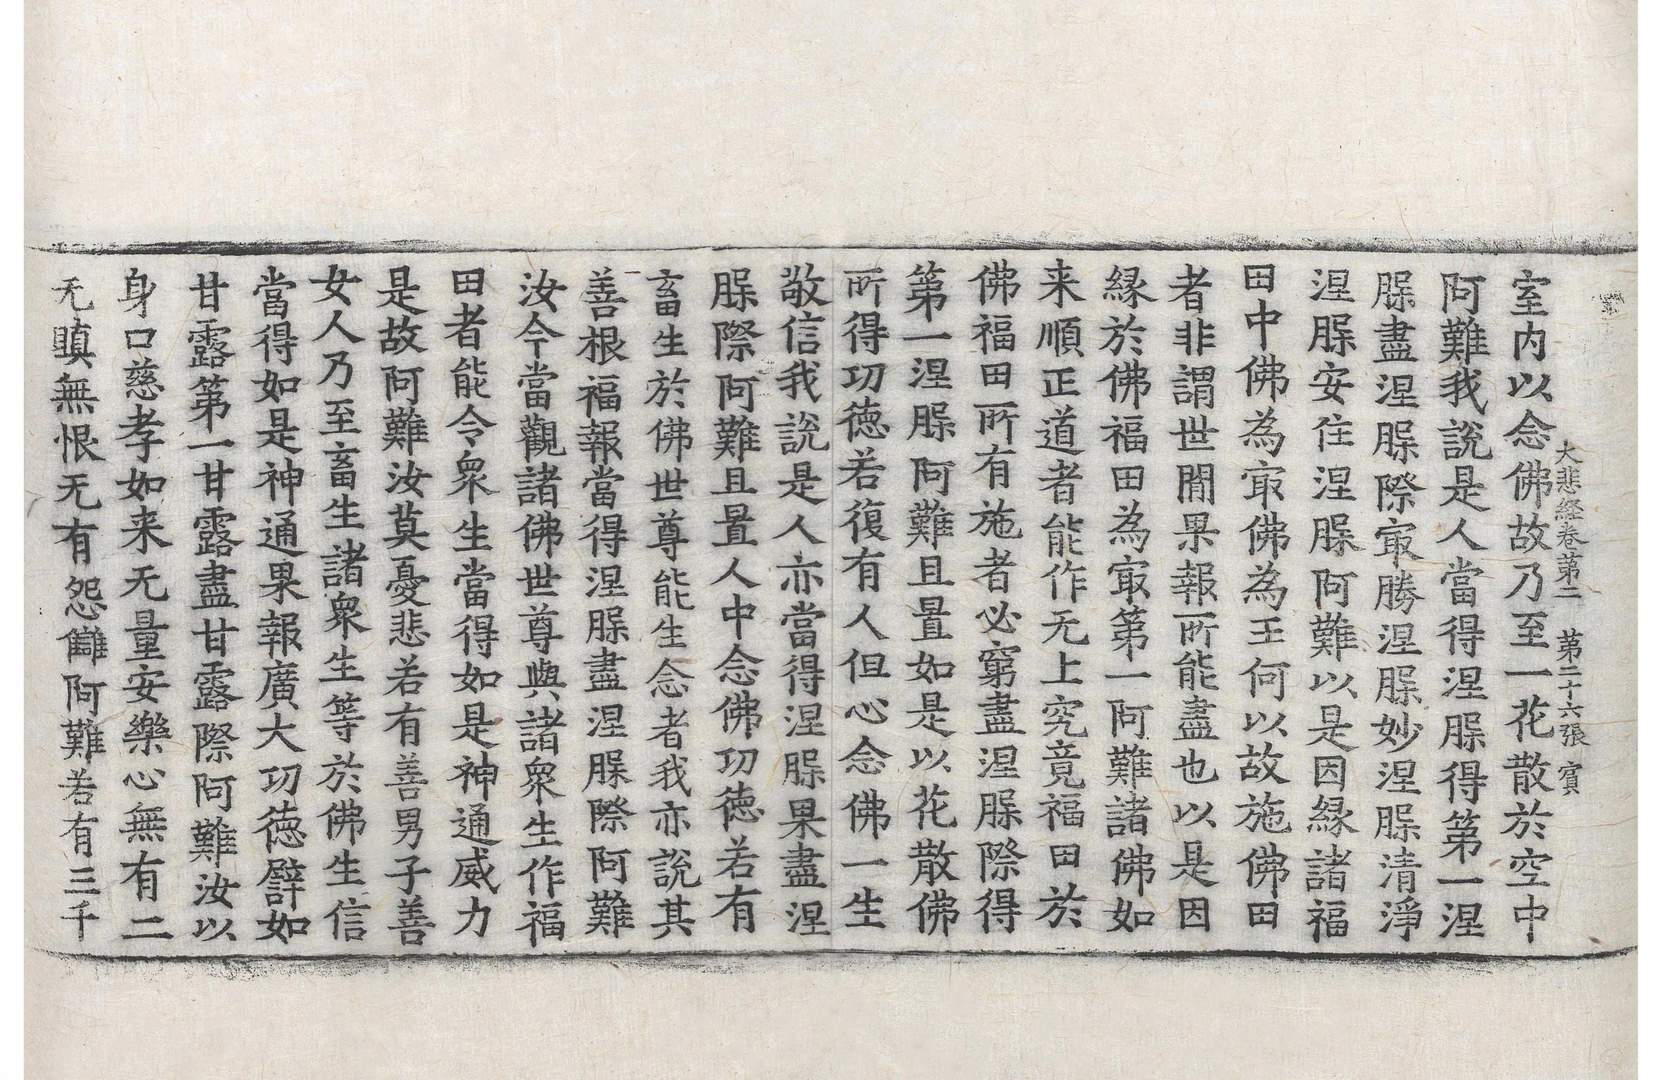 大悲経卷第二　第二十六張　賓
室内以念佛故乃至一花散於空中
阿難我說是人當得涅槃得第一涅
槃盡涅槃際㝡勝涅槃妙涅槃清淨
涅槃安住涅槃阿難以是因緣諸福
田中佛為㝡佛為王何以故施佛田
者非謂世間果報所能盡也以是因
緣於佛福田為㝡第一阿難諸佛如
来順正道者能作无上究竟福田於
佛福田所有施者必窮盡涅槃際得
第一涅槃阿難且置如是以花散佛
所得功德若復有人但心念佛一生
敬信我說是人亦當得涅槃果盡涅
槃際阿難且置人中念佛功德若有
畜生於佛世尊能生念者我亦說其
善根福報當得涅槃盡涅槃際阿難
汝今當觀諸佛世尊與諸衆生作福
田者能令衆生當得如是神通威力
是故阿難汝莫憂悲若有善男子善
女人乃至畜生諸衆生等於佛生信
當得如是神通果報廣大功德譬如
甘露第一甘露盡甘露際阿難汝以
身口慈孝如来无量安樂心無有二
无瞋無恨无有怨讎阿難若有三千